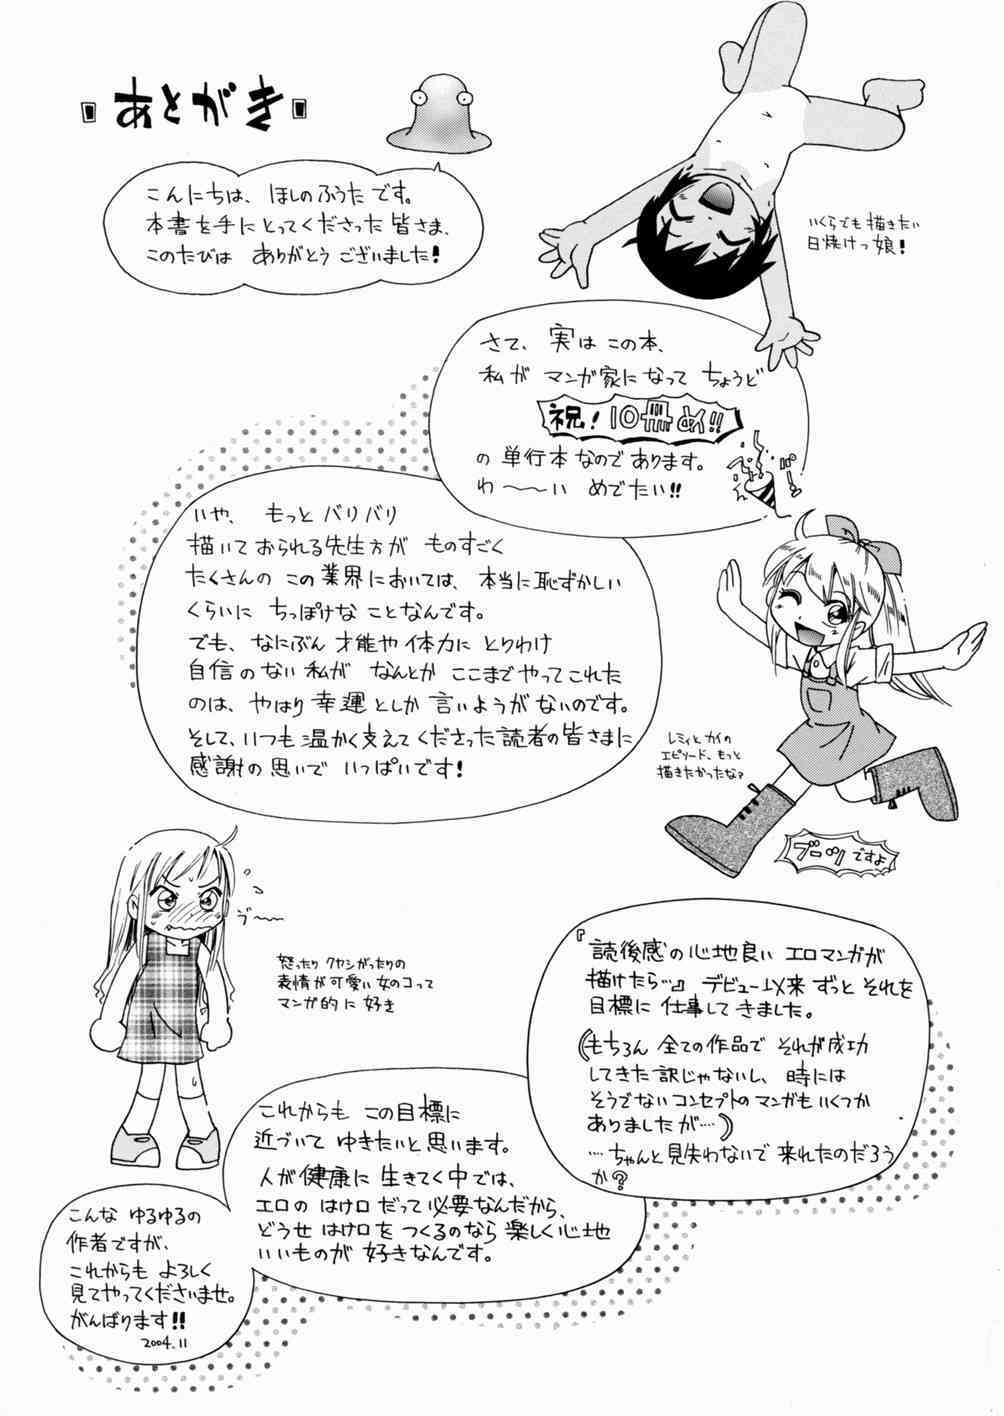 あとがき
こんにちは、ほしのふうたです。
本書を手にとってくださった皆さま、
このたびは ありがとうございました!
いくらでも描きたい
日焼けっ娘!
さて、実はこの本、
私が マンガ家になって ちょうど
祝!10冊め!!
の 単行本なのであります。
わ〜〜い めでたい!!
ぱーん
いや、もっと バリバリ
描いておられる先生方が ものすごく
たくさんの この業界においては、本当に恥ずかしい
くらいに ちっぽけな ことなんです。
でも、なにぶん 才能や体力に とりわけ
自信のない私が なんとか ここまでやってこれた
のは、やはり 幸運としか 言いようがないのです。
そして、いつも温かく支えてくださった読者の皆さまに
感謝の思いで いっぱいです!
レミィとカイの
エピソード、もっと
描きたかったな?
ブーツですよ
ぶ〜〜
怒ったり クヤシがったりの
表情が可愛い女のコって
マンガ的に 好き
『読後感の心地良い エロマンガが
描けたら…』デビュー以来 ずっと それを
目標に 仕事してきました。
(もちろん 全ての作品で それが成功
してきた訳じゃないし、時には
そうでないコンセプトのマンガもいくつか
ありましたが…)
…ちゃんと見失わないで 来れたのだろう
か?
これからも この目標に
近づいて ゆきたいと思います。
人が健康に 生きてく中では、
エロの はけ口だって必要なんだから、
どうせ はけ口を つくるのなら 楽しく心地
いいものが 好きなんです。
こんな ゆるゆるの
作者ですが、
これからも よろしく
見てやってくださいませ。
がんばります!!
2004.11